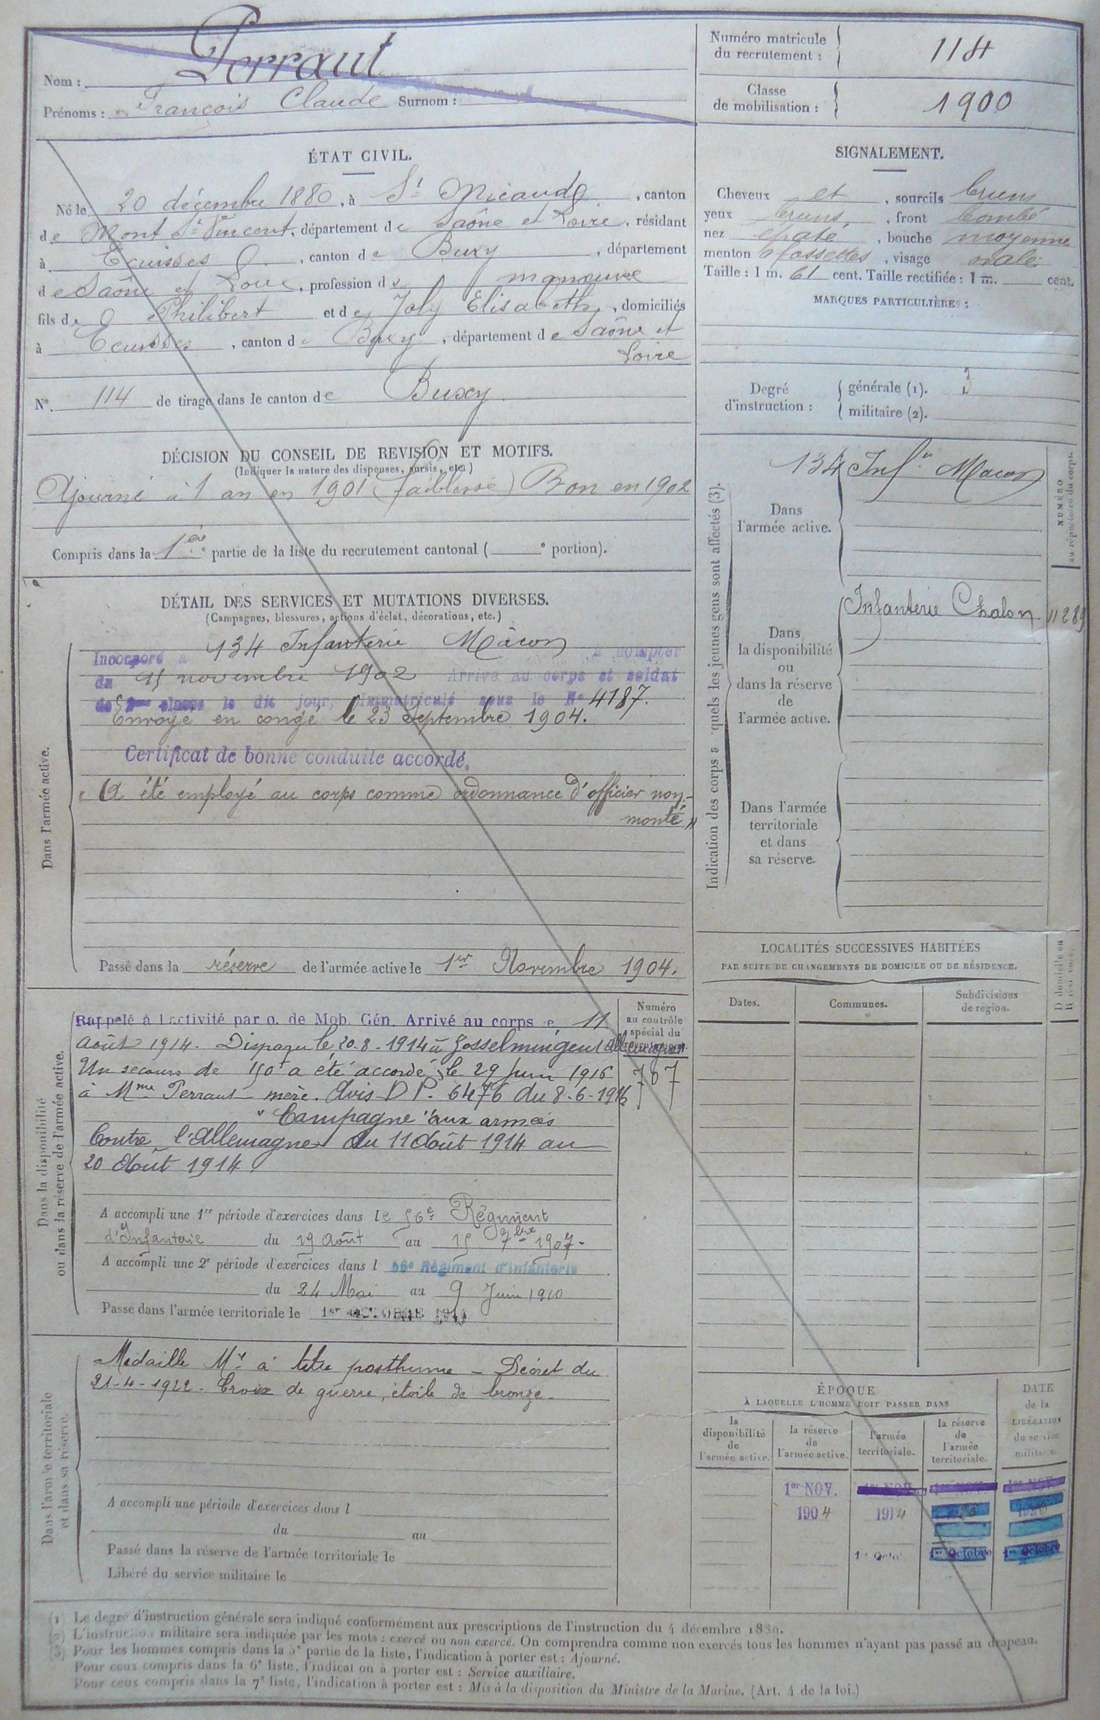 Nom : Perraut
Prénoms : François Claude Surnom :
Numéro matricule du recrutement : 114
Classe de mobilisation : 1900
ÉTAT CIVIL.
Né le 20 décembre 1880, à St Micaud, canton
de Mont St Vincent, département de Saône et Loire, résidant
à Ecuisses, canton de Buxy, département
de Saône et Loire, profession de manœuvre
fils de Philibert et de Joly Elisabeth, domiciliés
à Ecuisses, canton de Buxy, département de Saône et
Loire
N° 114 de tirage dans le canton de Buxy
SIGNALEMENT.
Cheveux et, sourcils bruns
yeux bruns, front bombé
nez épaté, bouche moyenne
menton à fossettes, visage ovale
Taille : 1 m. 61 cent. Taille rectifiée : 1 m. cent.
MARQUES PARTICULIÈRES :
Degré d'instruction : générale (1). 3
militaire (2).
DÉCISION DU CONSEIL DE REVISION ET MOTIFS.
(Indiquer la nature des dispenses, sursis, etc.)
Ajourné à 1 an en 1901 (faiblesse) Bon en 1902
Compris dans la 1ère partie de la liste du recrutement cantonal ( e portion).
DÉTAIL DES SERVICES ET MUTATIONS DIVERSES.
(Campagnes, blessures, actions d'éclat, décorations, etc.)
Dans l'armée active.
Incorporé à 134 Infanterie Mâcon à compter
du 15 novembre 1902 Arrivé au corps et soldat
de 2me classe le dit jour, immatriculé sous le N° 4187.
Envoyé en congé le 23 Septembre 1904.
Certificat de bonne conduite accordé.
A été employé au corps comme ordonnance d'officier non-
monté
Passé dans la réserve de l'armée active le 1er Novembre 1904.
Indication des corps auxquels les jeunes gens sont affectés (3).
NUMÉRO au répertoire du corps.
Dans l'armée active.
134 Infie Macon
Dans la disponibilité ou dans la réserve de l'armée active.
Infanterie Chalon
Dans l'armée territoriale et dans sa réserve.
LOCALITÉS SUCCESSIVES HABITÉES
PAR SUITE DE CHANGEMENTS DE DOMICILE OU DE RÉSIDENCE.
Dates. Communes. Subdivisions de région.
Dans la disponibilité ou dans la réserve de l'armée active.
Numéro au contrôle spécial du
707
Rappelé à l'activité par o. de Mob. Gén. Arrivé au corps le 11
août 1914. Disparu le 20.8.1914 à Gosselmingen
Un secours de 150f a été accordé le 29 Juin 1916
à Mme Perraut mère. Avis D.P. 6476 du 8-6-1916
Campagne "aux armées
Contre l'Allemagne du 11 Août 1914 au
20 Août 1914
A accompli une 1re période d'exercices dans le 56e Régiment
d'Infanterie du 19 Août au 15 7bre 1907.
A accompli une 2e période d'exercices dans l 56e Régiment d'Infanterie
du 24 Mai au 9 Juin 1910
Passé dans l'armée territoriale le 1er OCTOBRE
Dans l'armée territoriale et dans sa réserve.
Médaille Mre à titre posthume – Décret du
21-4-1922. Croix de guerre, étoile de bronze.
A accompli une période d'exercices dans l
du au
Passé dans la réserve de l'armée territoriale le
Libéré du service militaire le
ÉPOQUE
À LAQUELLE L'HOMME DOIT PASSER DANS
DATE de la LIBÉRATION du service militaire.
la disponibilité de l'armée active. la réserve de l'armée active. l'armée territoriale. la réserve de l'armée territoriale.
1er NOV.
1904 1914
1er Octobre 1er Octobre
(1) Le degré d'instruction générale sera indiqué conformément aux prescriptions de l'instruction du 4 décembre 1889.
(2) L'instruction militaire sera indiquée par les mots : exercé ou non exercé. On comprendra comme non exercés tous les hommes n'ayant pas passé au drapeau.
(3) Pour les hommes compris dans la 5e partie de la liste, l'indication à porter est : Ajourné.
Pour ceux compris dans la 6e liste, l'indication à porter est : Service auxiliaire.
Pour ceux compris dans la 7e liste, l'indication à porter est : Mis à la disposition du Ministre de la Marine. (Art. 4 de la loi.)